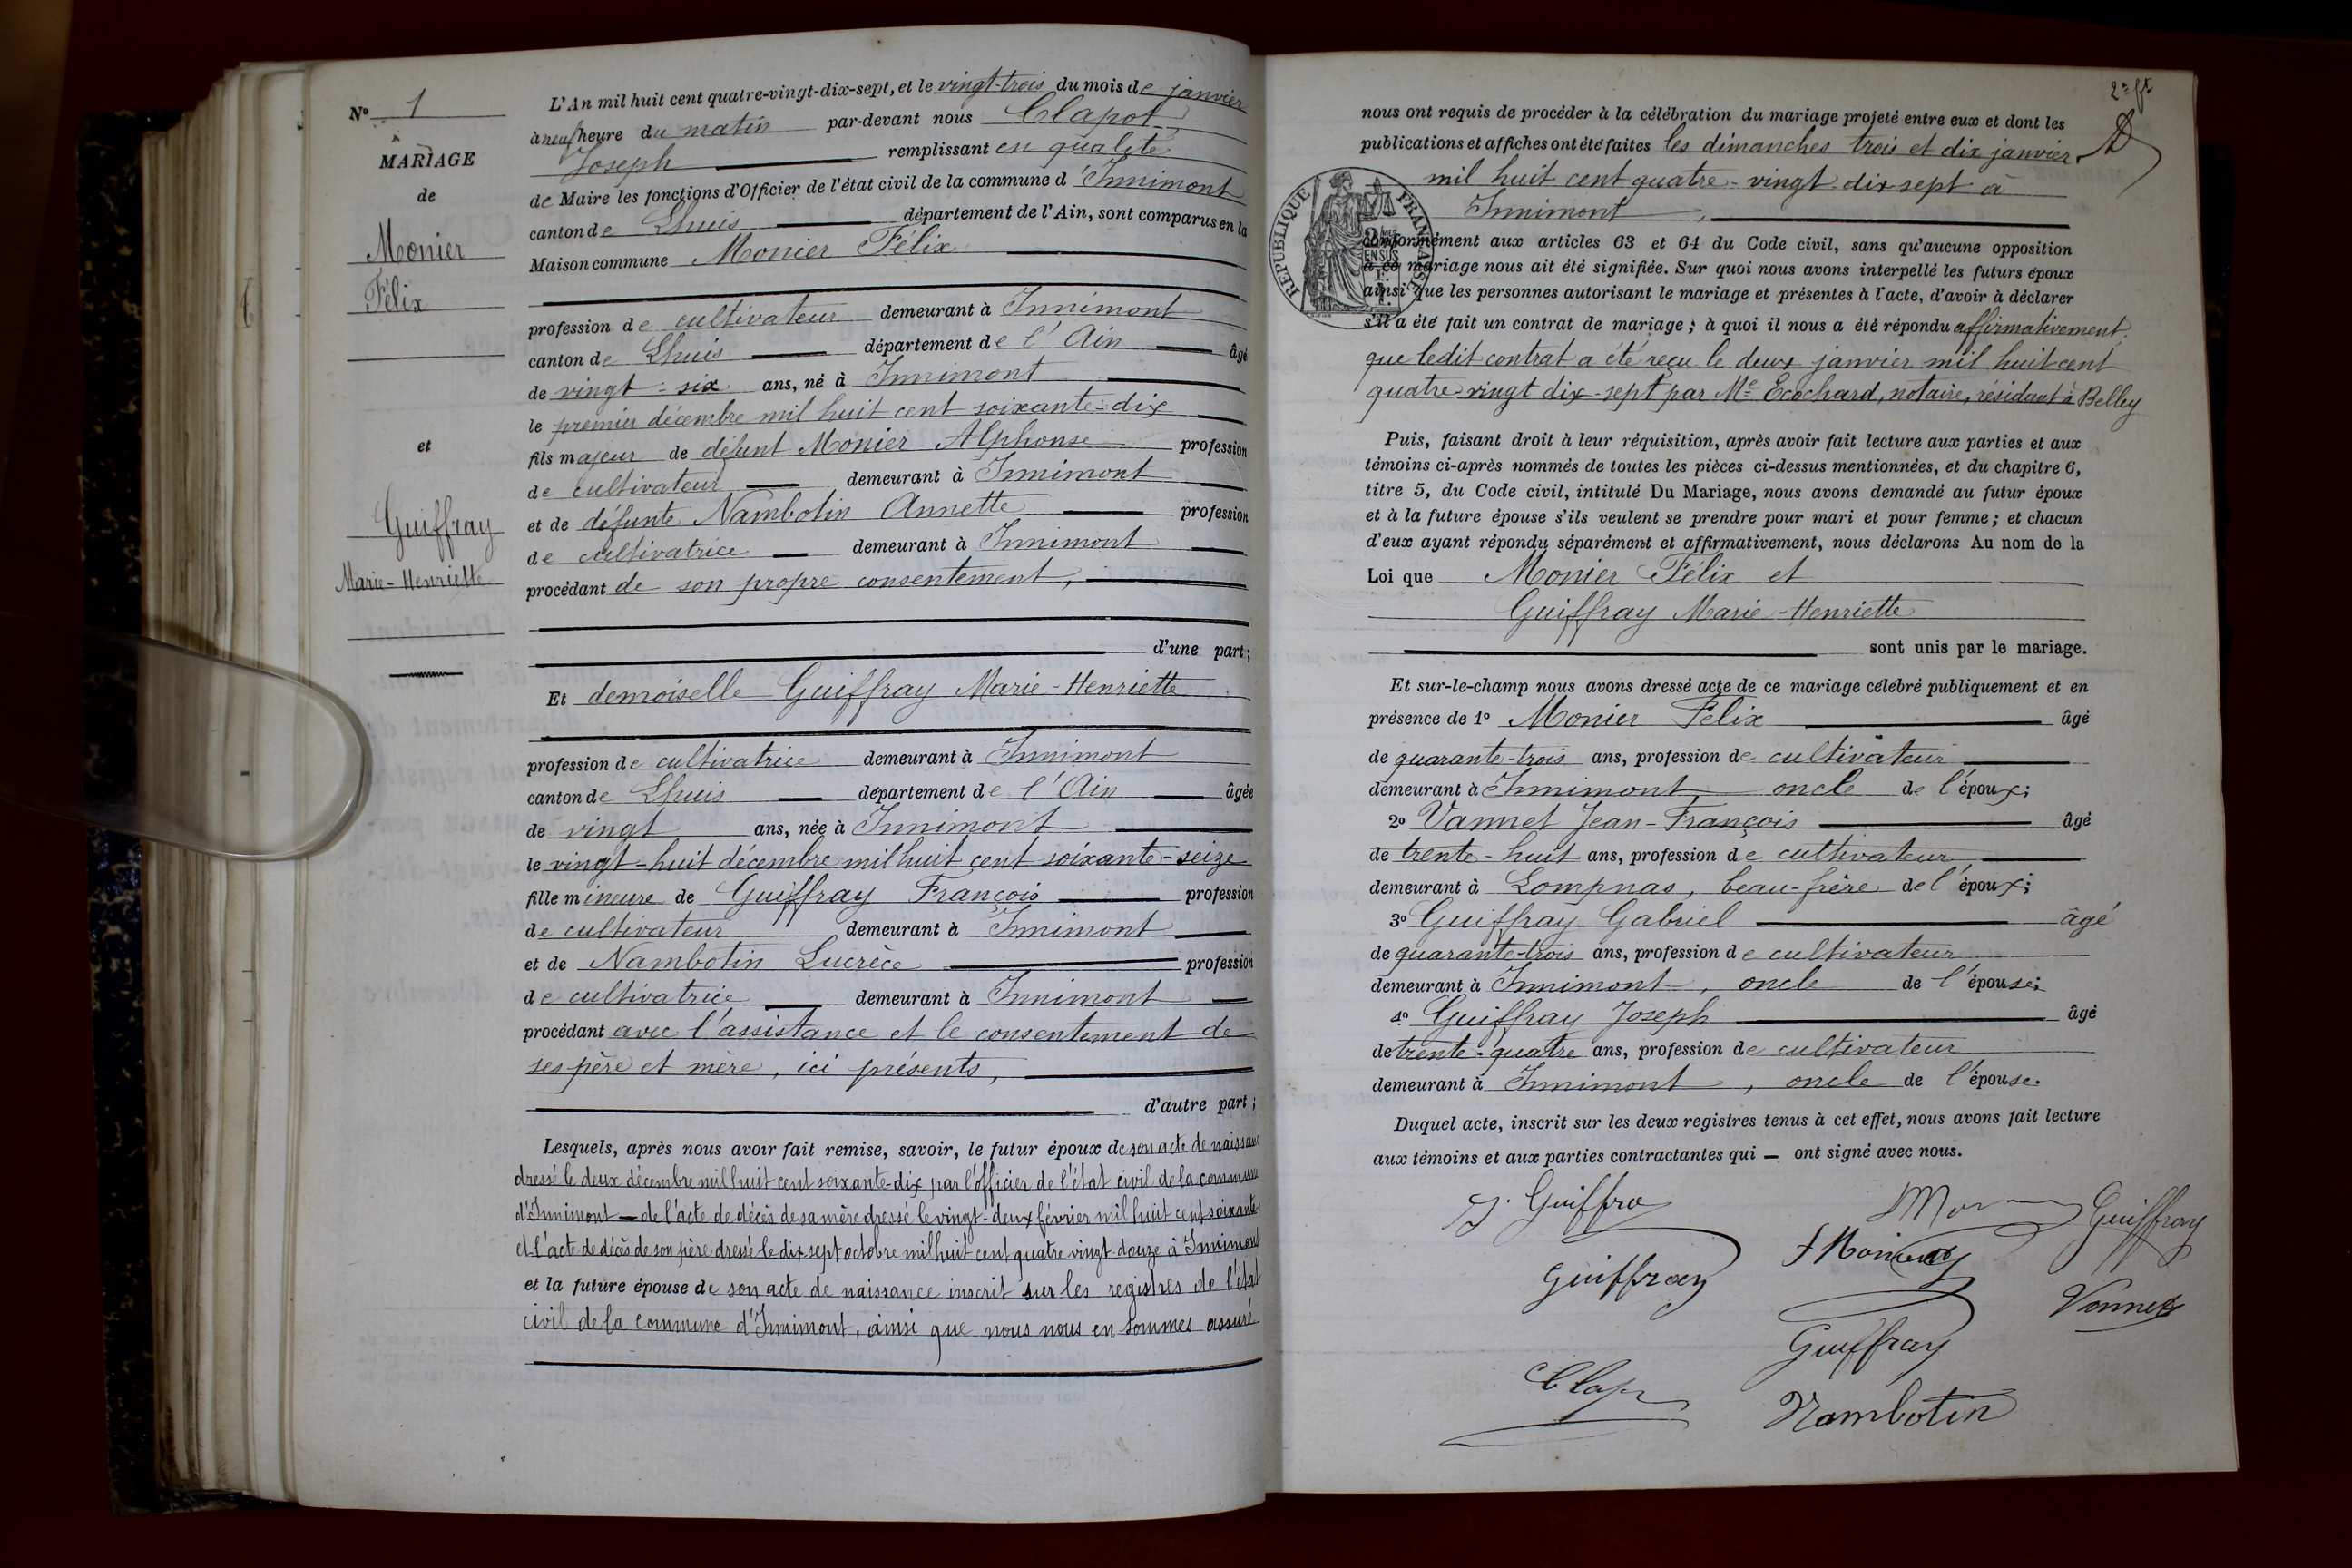 N° 1
MARIAGE
de
Monier
Félix
et
Guiffray
Marie-Henriette
L'An mil huit cent quatre-vingt-dix-sept, et le vingt-trois du mois de janvier
à neuf heure du matin par-devant nous Clapot
Joseph remplissant en qualité
de Maire les fonctions d'Officier de l'état civil de la commune d'Innimont
canton de Lhuis département de l'Ain, sont comparus en la
Maison commune Monier Félix
profession de cultivateur demeurant à Innimont
canton de Lhuis département de l'Ain âgé
de vingt-six ans, né à Innimont
le premier décembre mil huit cent soixante-dix
fils majeur de défunt Monier Alphonse profession
de cultivateur demeurant à Innimont
et de défunte Nambotin Annette profession
de cultivatrice demeurant à Innimont
procédant de son propre consentement,
d'une part;
Et demoiselle Guiffray Marie-Henriette
profession de cultivatrice demeurant à Innimont
canton de Lhuis département de l'Ain âgée
de vingt ans, née à Innimont
le vingt-huit décembre mil huit cent soixante-seize
fille mineure de Guiffray François profession
de cultivateur demeurant à Innimont
et de Nambotin Lucrèce profession
de cultivatrice demeurant à Innimont
procédant avec l'assistance et le consentement de
ses père et mère, ici présents,
d'autre part;
Lesquels, après nous avoir fait remise, savoir, le futur époux de son acte de naissance
dressé le deux décembre mil huit cent soixante-dix par l'officier de l'état civil de la commune
d'Innimont — de l'acte de décès de sa mère dressé le vingt-deux février mil huit cent soixante-
et l'acte de décès de son père dressé le dix sept octobre mil huit cent quatre vingt-douze à Innimont
et la future épouse de son acte de naissance inscrit sur les registres de l'état
civil de la commune d'Innimont, ainsi que nous nous en sommes assuré
nous ont requis de procéder à la célébration du mariage projeté entre eux et dont les
publications et affiches ont été faites les dimanches trois et dix janvier
mil huit cent quatre-vingt dix sept à
Innimont,
RÉPUBLIQUE FRANÇAISE
conformément aux articles 63 et 64 du Code civil, sans qu'aucune opposition
à ce mariage nous ait été signifiée. Sur quoi nous avons interpellé les futurs époux
ainsi que les personnes autorisant le mariage et présentes à l'acte, d'avoir à déclarer
s'il a été fait un contrat de mariage; à quoi il nous a été répondu affirmativement
que ledit contrat a été reçu le deux janvier mil huit cent
quatre-vingt dix-sept par Me Ecochard, notaire, résidant à Belley
Puis, faisant droit à leur réquisition, après avoir fait lecture aux parties et aux
témoins ci-après nommés de toutes les pièces ci-dessus mentionnées, et du chapitre 6,
titre 5, du Code civil, intitulé Du Mariage, nous avons demandé au futur époux
et à la future épouse s'ils veulent se prendre pour mari et pour femme; et chacun
d'eux ayant répondu séparément et affirmativement, nous déclarons Au nom de la
Loi que Monier Félix et
Guiffray Marie-Henriette
sont unis par le mariage.
Et sur-le-champ nous avons dressé acte de ce mariage célébré publiquement et en
présence de 1° Monier Félix âgé
de quarante-trois ans, profession de cultivateur
demeurant à Innimont, oncle de l'époux;
2° Vannet Jean-François âgé
de trente-huit ans, profession de cultivateur,
demeurant à Lompnas, beau-frère de l'époux;
3° Guiffray Gabriel âgé
de quarante-trois ans, profession de cultivateur
demeurant à Innimont, oncle de l'épouse;
4° Guiffray Joseph âgé
de trente-quatre ans, profession de cultivateur
demeurant à Innimont, oncle de l'épouse.
Duquel acte, inscrit sur les deux registres tenus à cet effet, nous avons fait lecture
aux témoins et aux parties contractantes qui — ont signé avec nous.
Guiffray
Guiffray
Vannet
Guiffray
Nambotin